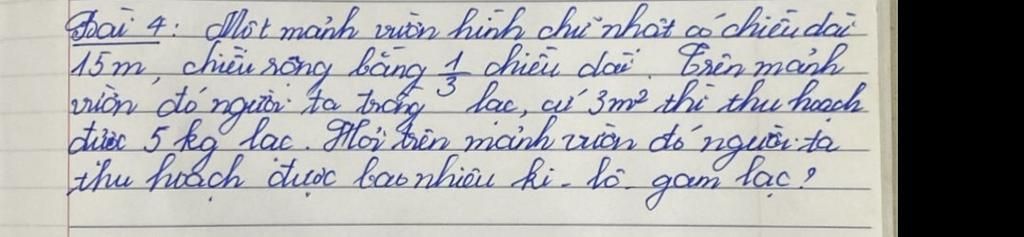 Bài 4: Một mảnh vườn hình chữ nhật có chiều dài
15m, chiều rộng bằng 1/3 chiều dài. Trên mảnh
vườn đó người ta trồng lạc, cứ 3m² thì thu hoạch
được 5 kg lạc. Hỏi trên mảnh vườn đó người ta
thu hoạch được bao nhiêu ki-lô-gam lạc?